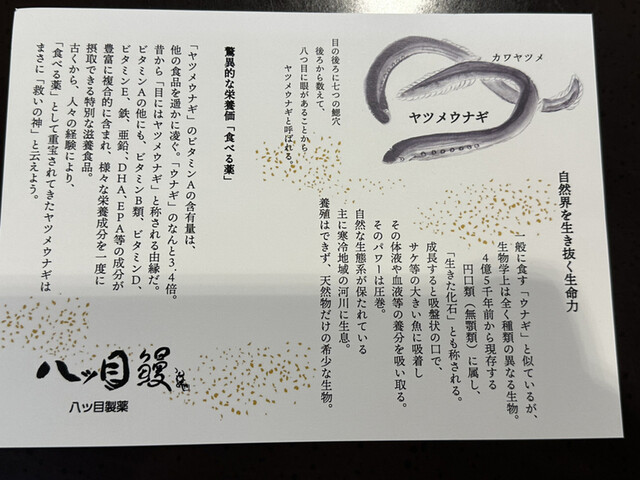 カワヤツメ
ヤツメウナギ
自然界を生き抜く生命力
一般に食す「ウナギ」と似ているが、
生物学上は全く種類の異なる生物。
4億5千年前から現存する
円口類（無顎類）に属し、
「生きた化石」とも称される。
成長すると吸盤状の口で、
サケ等の大きい魚に吸着し
その体液や血液等の養分を吸い取る。
そのパワーは圧巻。
自然な生態系が保たれている
主に寒冷地域の河川に生息。
養殖はできず、天然物だけの希少な生物。
目の後ろに七つの鰓穴
後ろから数えて、
八つ目に眼があることから
ヤツメウナギと呼ばれる。
驚異的な栄養価「食べる薬」
「ヤツメウナギ」のビタミンAの含有量は、
他の食品を遥かに凌ぐ。「ウナギ」のなんと3.4倍。
昔から「目にはヤツメウナギ」と称される由縁だ。
ビタミンAの他にも、ビタミンB類、ビタミンD、
ビタミンE、鉄、亜鉛、DHA、EPA等の成分が
豊富に複合的に含まれ、様々な栄養成分を一度に
摂取できる特別な滋養食品。
古くから、人々の経験により、
「食べる薬」として重宝されてきたヤツメウナギは
まさに「救いの神」と云えよう。
八ッ目鰻
八ッ目製薬